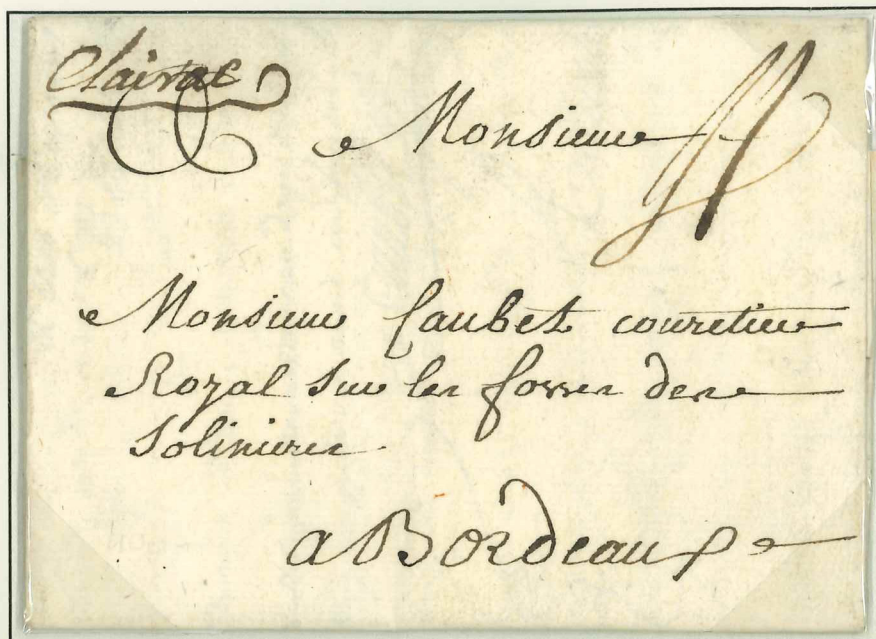 Clairac
Monsieur
Monsieur Caubet couretier
Royal sur les fossés des
Solinieres
a Bordeaux